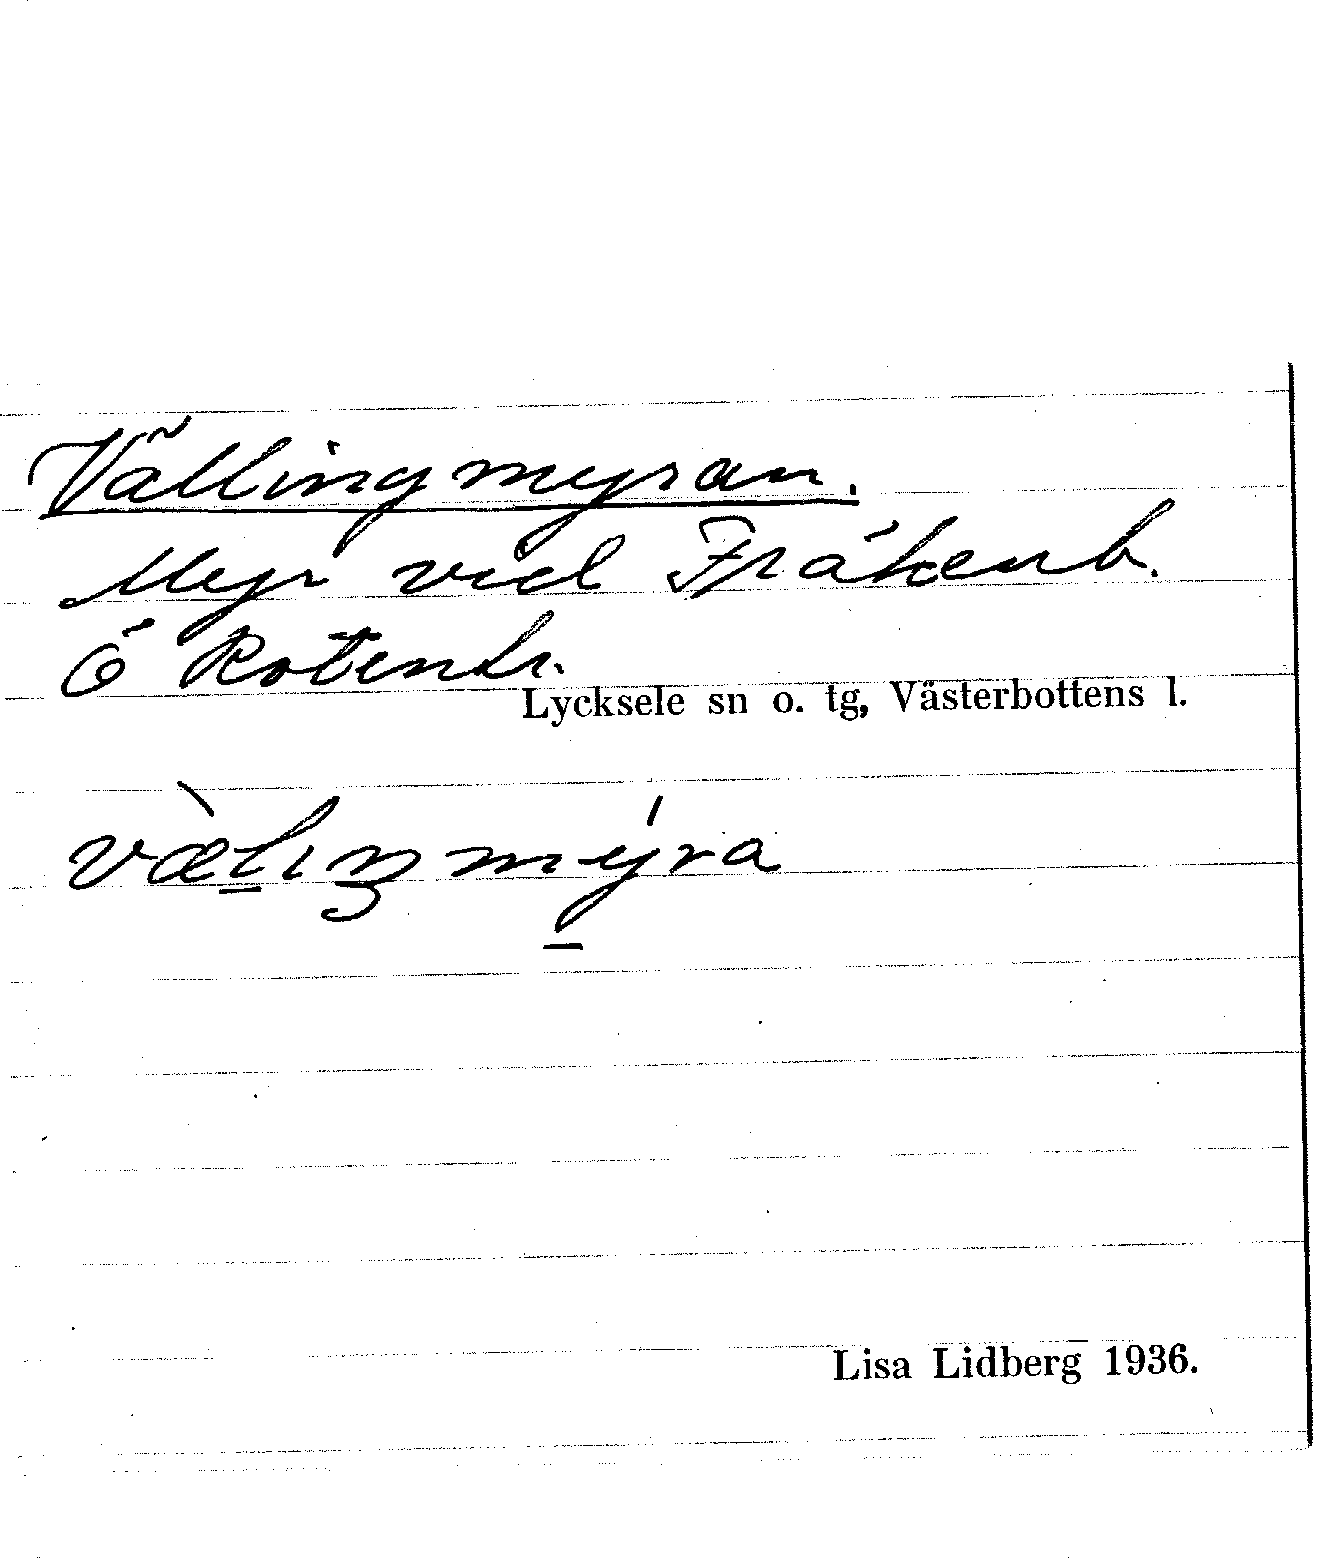 Vällingmyran.
Myr vid Fräkenb.
Ö Rotentr.
Lycksele sn o. tg, Västerbottens l.
væ̀lıŋmýra
Lisa Lidberg 1936.